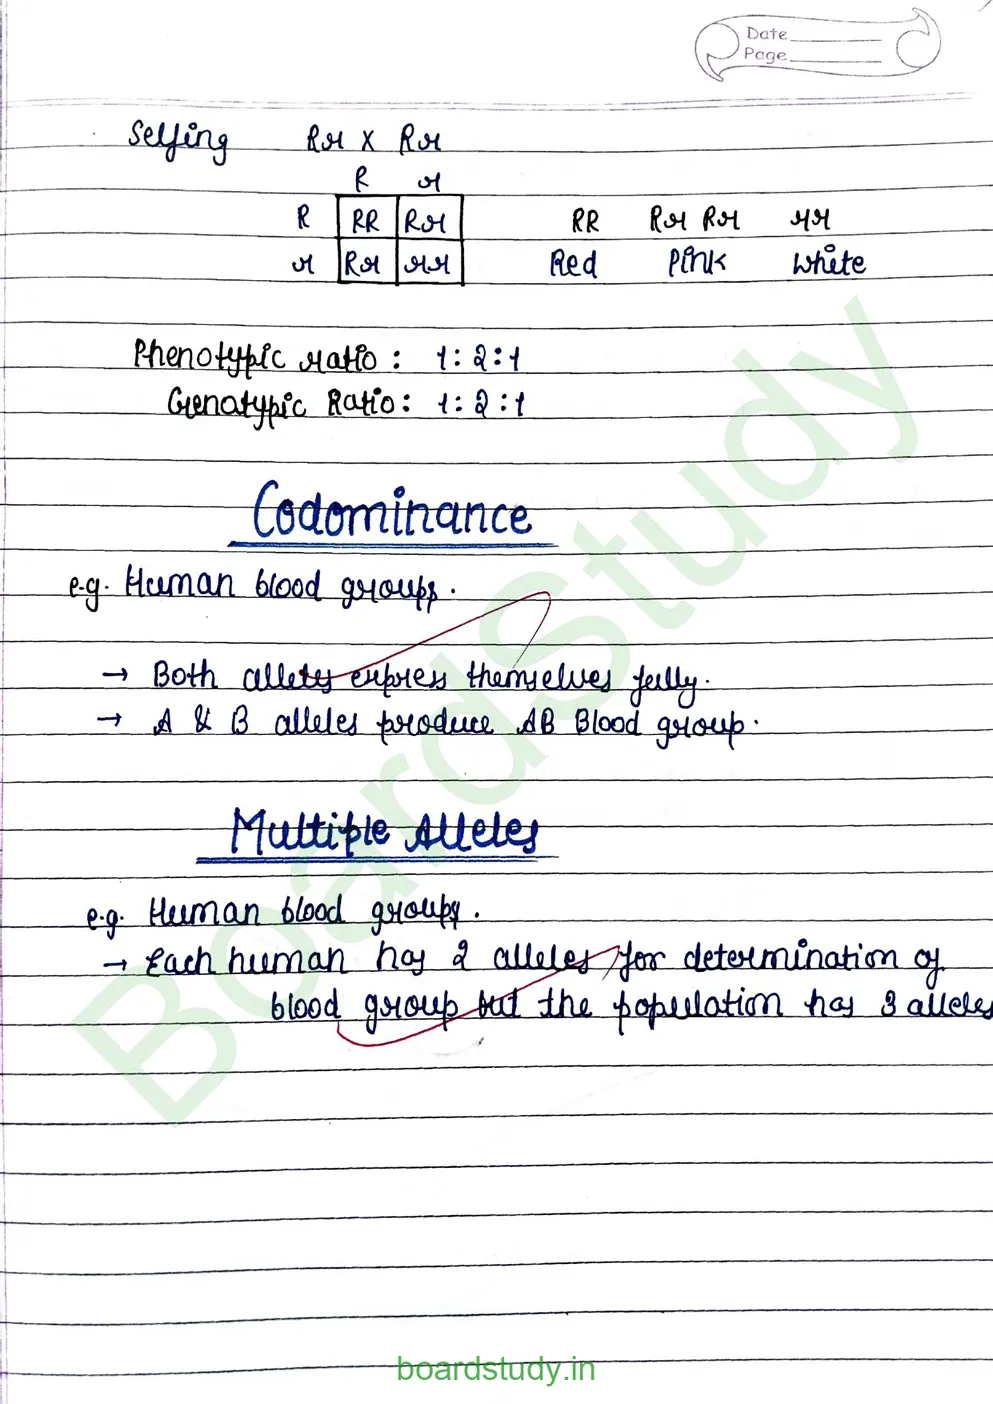 Date
Page
Selfing Rr x Rr
R r
R RR Rr RR Rr Rr rr
r Rr rr Red Pink White
Phenotypic ratio : 1 : 2 : 1
Genotypic Ratio : 1 : 2 : 1
Codominance
e.g. Human blood groups.
→ Both alleles express themselves fully.
→ A & B alleles produce AB Blood group.
Multiple Alleles
e.g. Human blood groups.
→ Each human has 2 alleles for determination of
blood group but the population has 3 alleles
Boardstudy
boardstudy.in